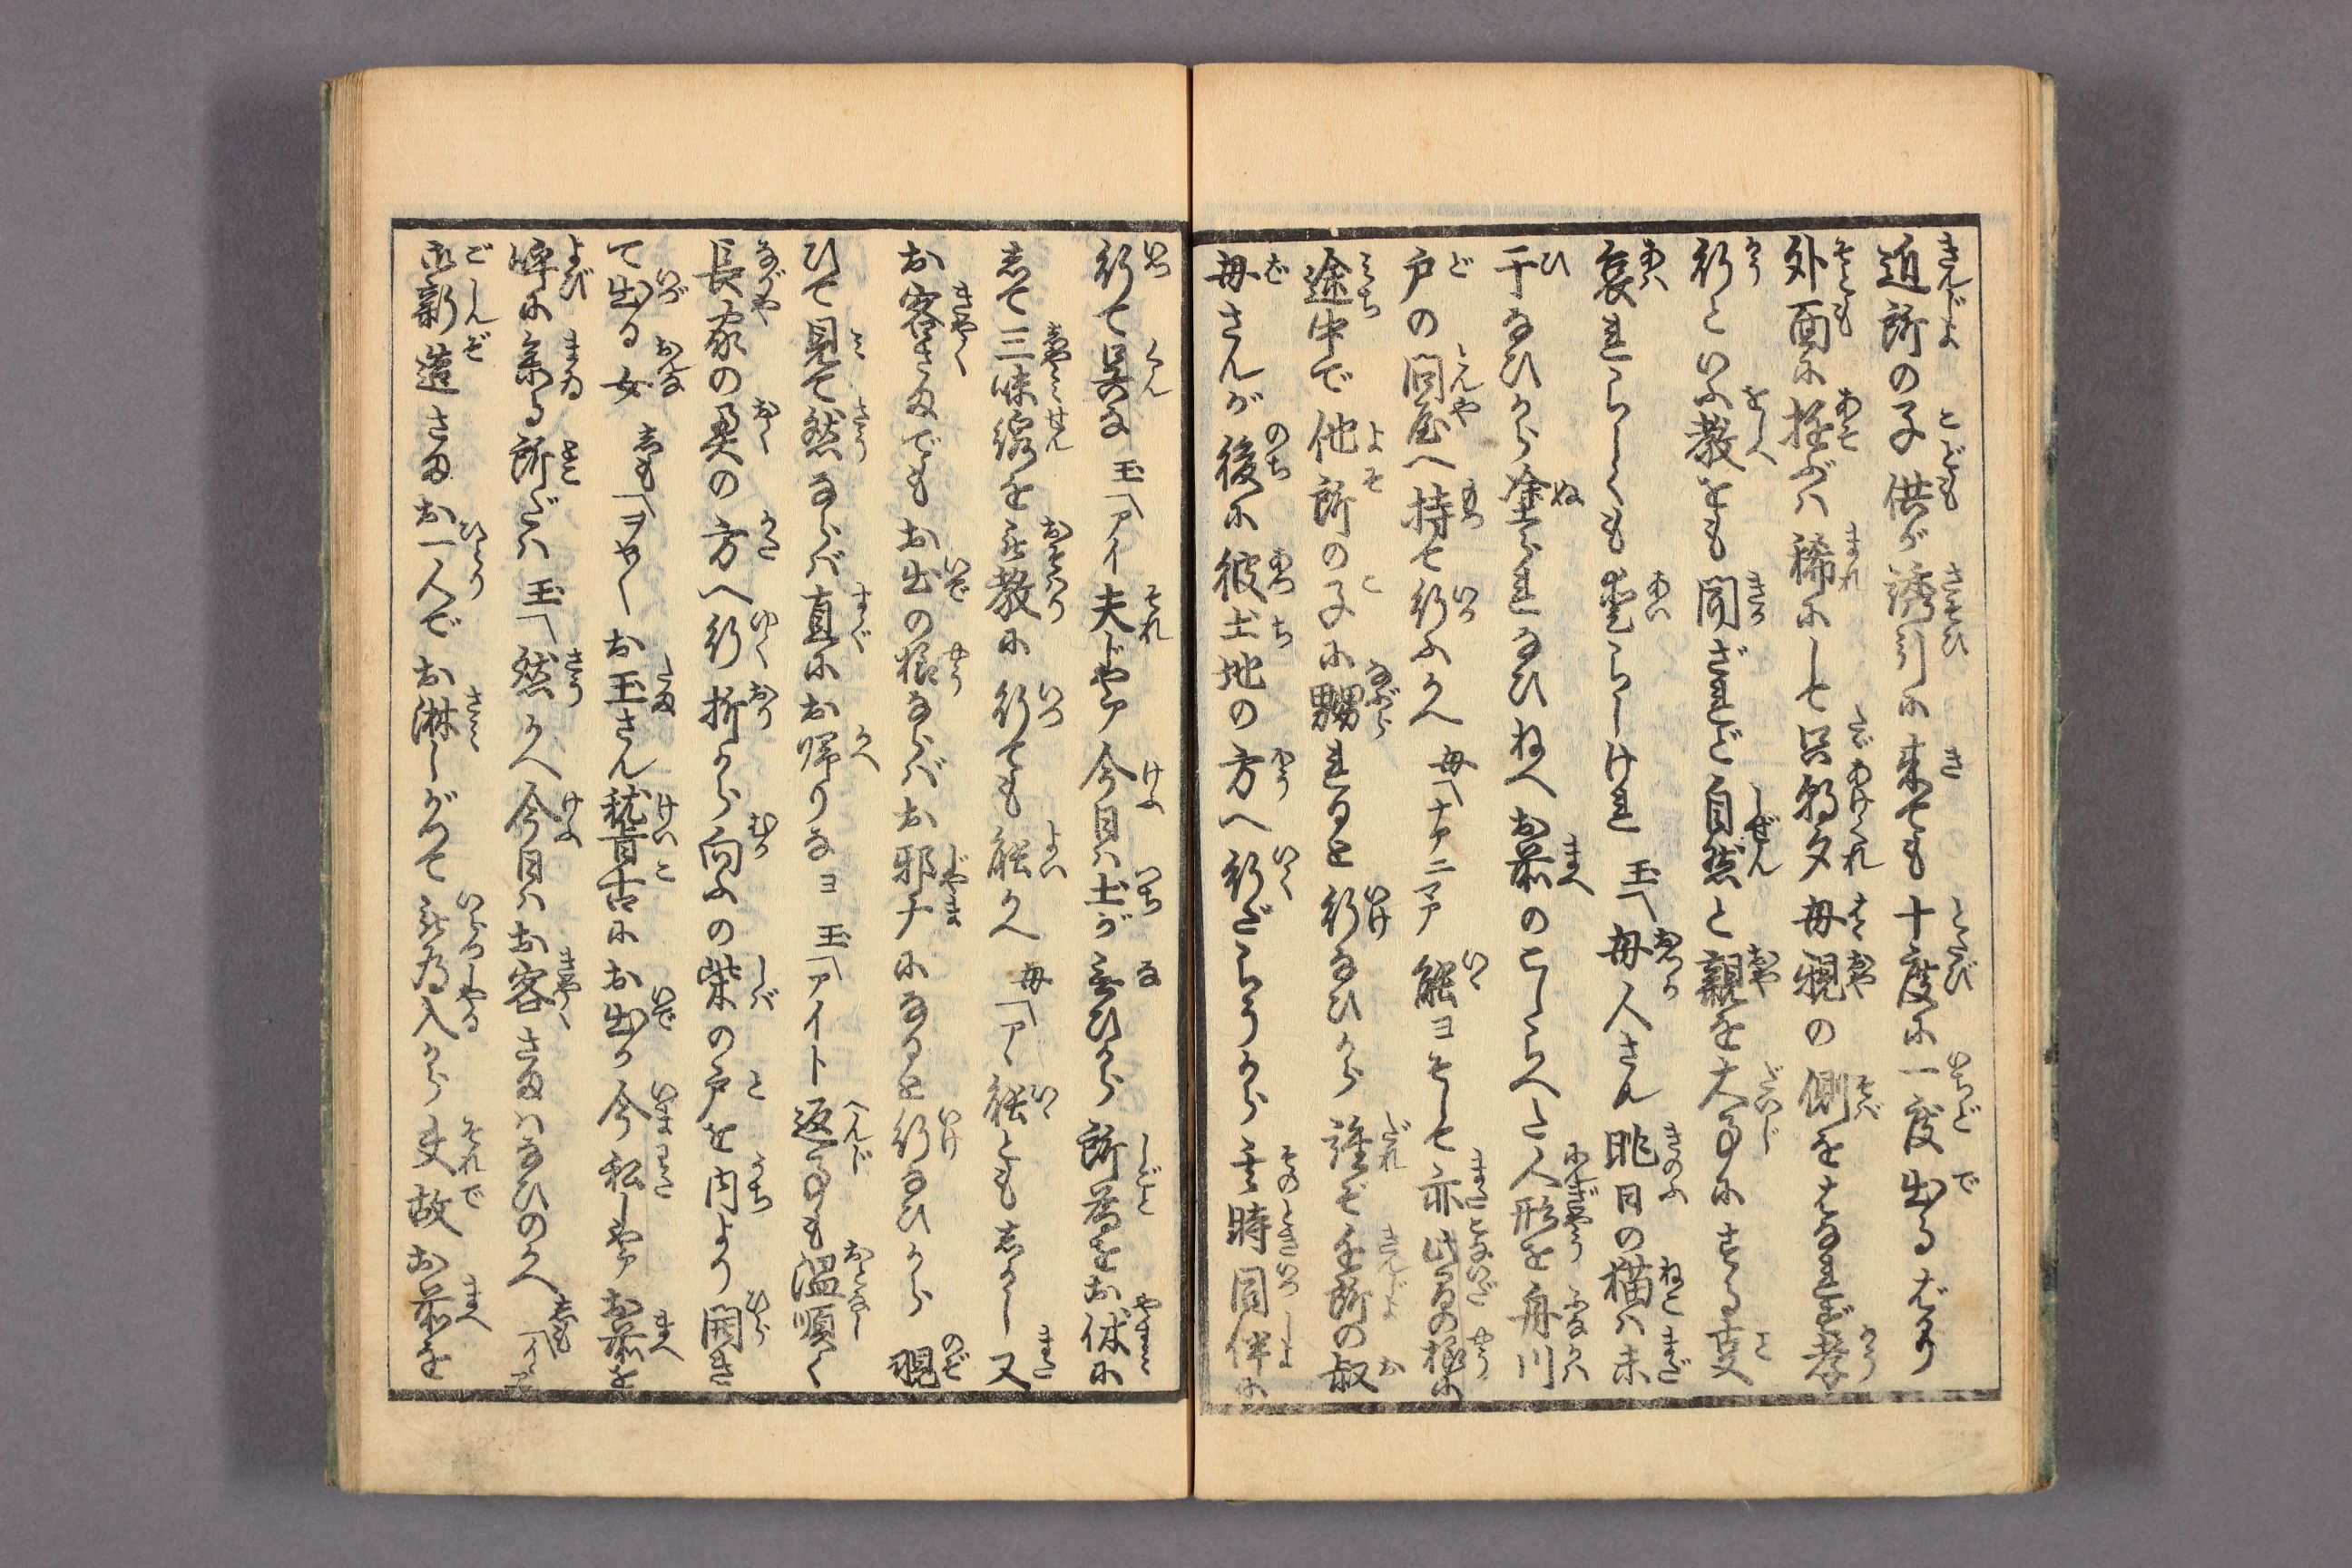 近所の子供が誘引に来ても十度に一度出るばかり
外面に遊ぶハ稀にして只朝夕母親の側をはなれず孝
行といふ教をも聞ざれど自然と親を大事にする事
哀れらしくも愛らしけれ 玉「母人さん昨日の猫ハ未
干ないから塗られないねへお前のこしらへた人形を舟川
戸の問屋へ持て行ふかへ 母「ナアニマア能ヨそして亦此間の様に
途中で他所の子に嬲れると行ないから誰ぞ近所の叔
母さんが後に彼土地の方へ行だらうから其時同伴に
行て呉な 玉「アイ夫じやア今日ハ土が無ひから所為をお休に
して三味線を御教に行ても能かへ 母「アヽ能とも志かし又
お客さまでもお出の様ならバお邪广になると行ないから覗
ひて見て然ならバ直にお帰りなヨ 玉「アイト返事も温順く
長家の奥の方へ行折から向ふの柴の戸を内より開き
て出る女 しも「ヲヤ〳〵お玉さん稽古にお出か今私しやアお前を
呼に参る所だハ 玉「然かへ今日ハお客さまハないのかへ しも「
御新造さまお一人でお淋しがつて被為入から夫故お前を